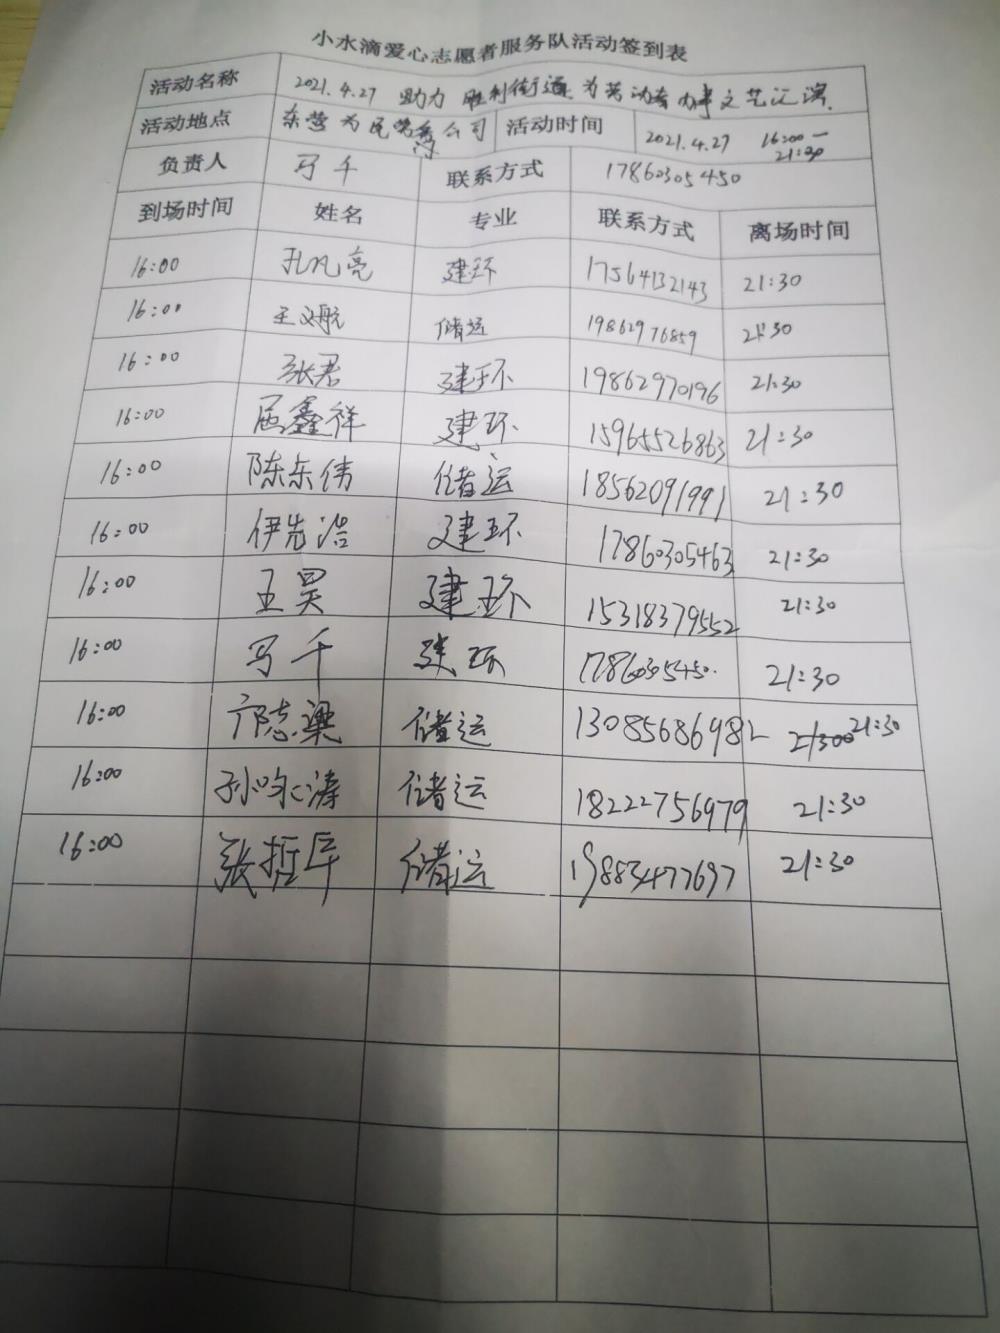 小水滴爱心志愿者服务队活动签到表
活动名称 2021.4.27 助力 胜利街道为劳动者办事文艺汇演
活动地点 东营为民劳务公司 活动时间 2021.4.27 16:00—21:30
负责人 马千 联系方式 17860305450
到场时间 姓名 专业 联系方式 离场时间
16:00 孔凡亮 建环 17564132143 21:30
16:00 王义航 储运 19862976859 21:30
16:00 张君 建环 19862970196 21:30
16:00 屈鑫祥 建环 15965526863 21:30
16:00 陈东伟 储运 18562091991 21:30
16:00 伊先浩 建环 17860305463 21:30
16:00 王昊 建环 15318379552 21:30
16:00 马千 建环 17860305450 21:30
16:00 邝志梁 储运 13085686982 21:30
16:00 孙咏涛 储运 18222756979 21:30
16:00 张哲 储运 19883477697 21:30